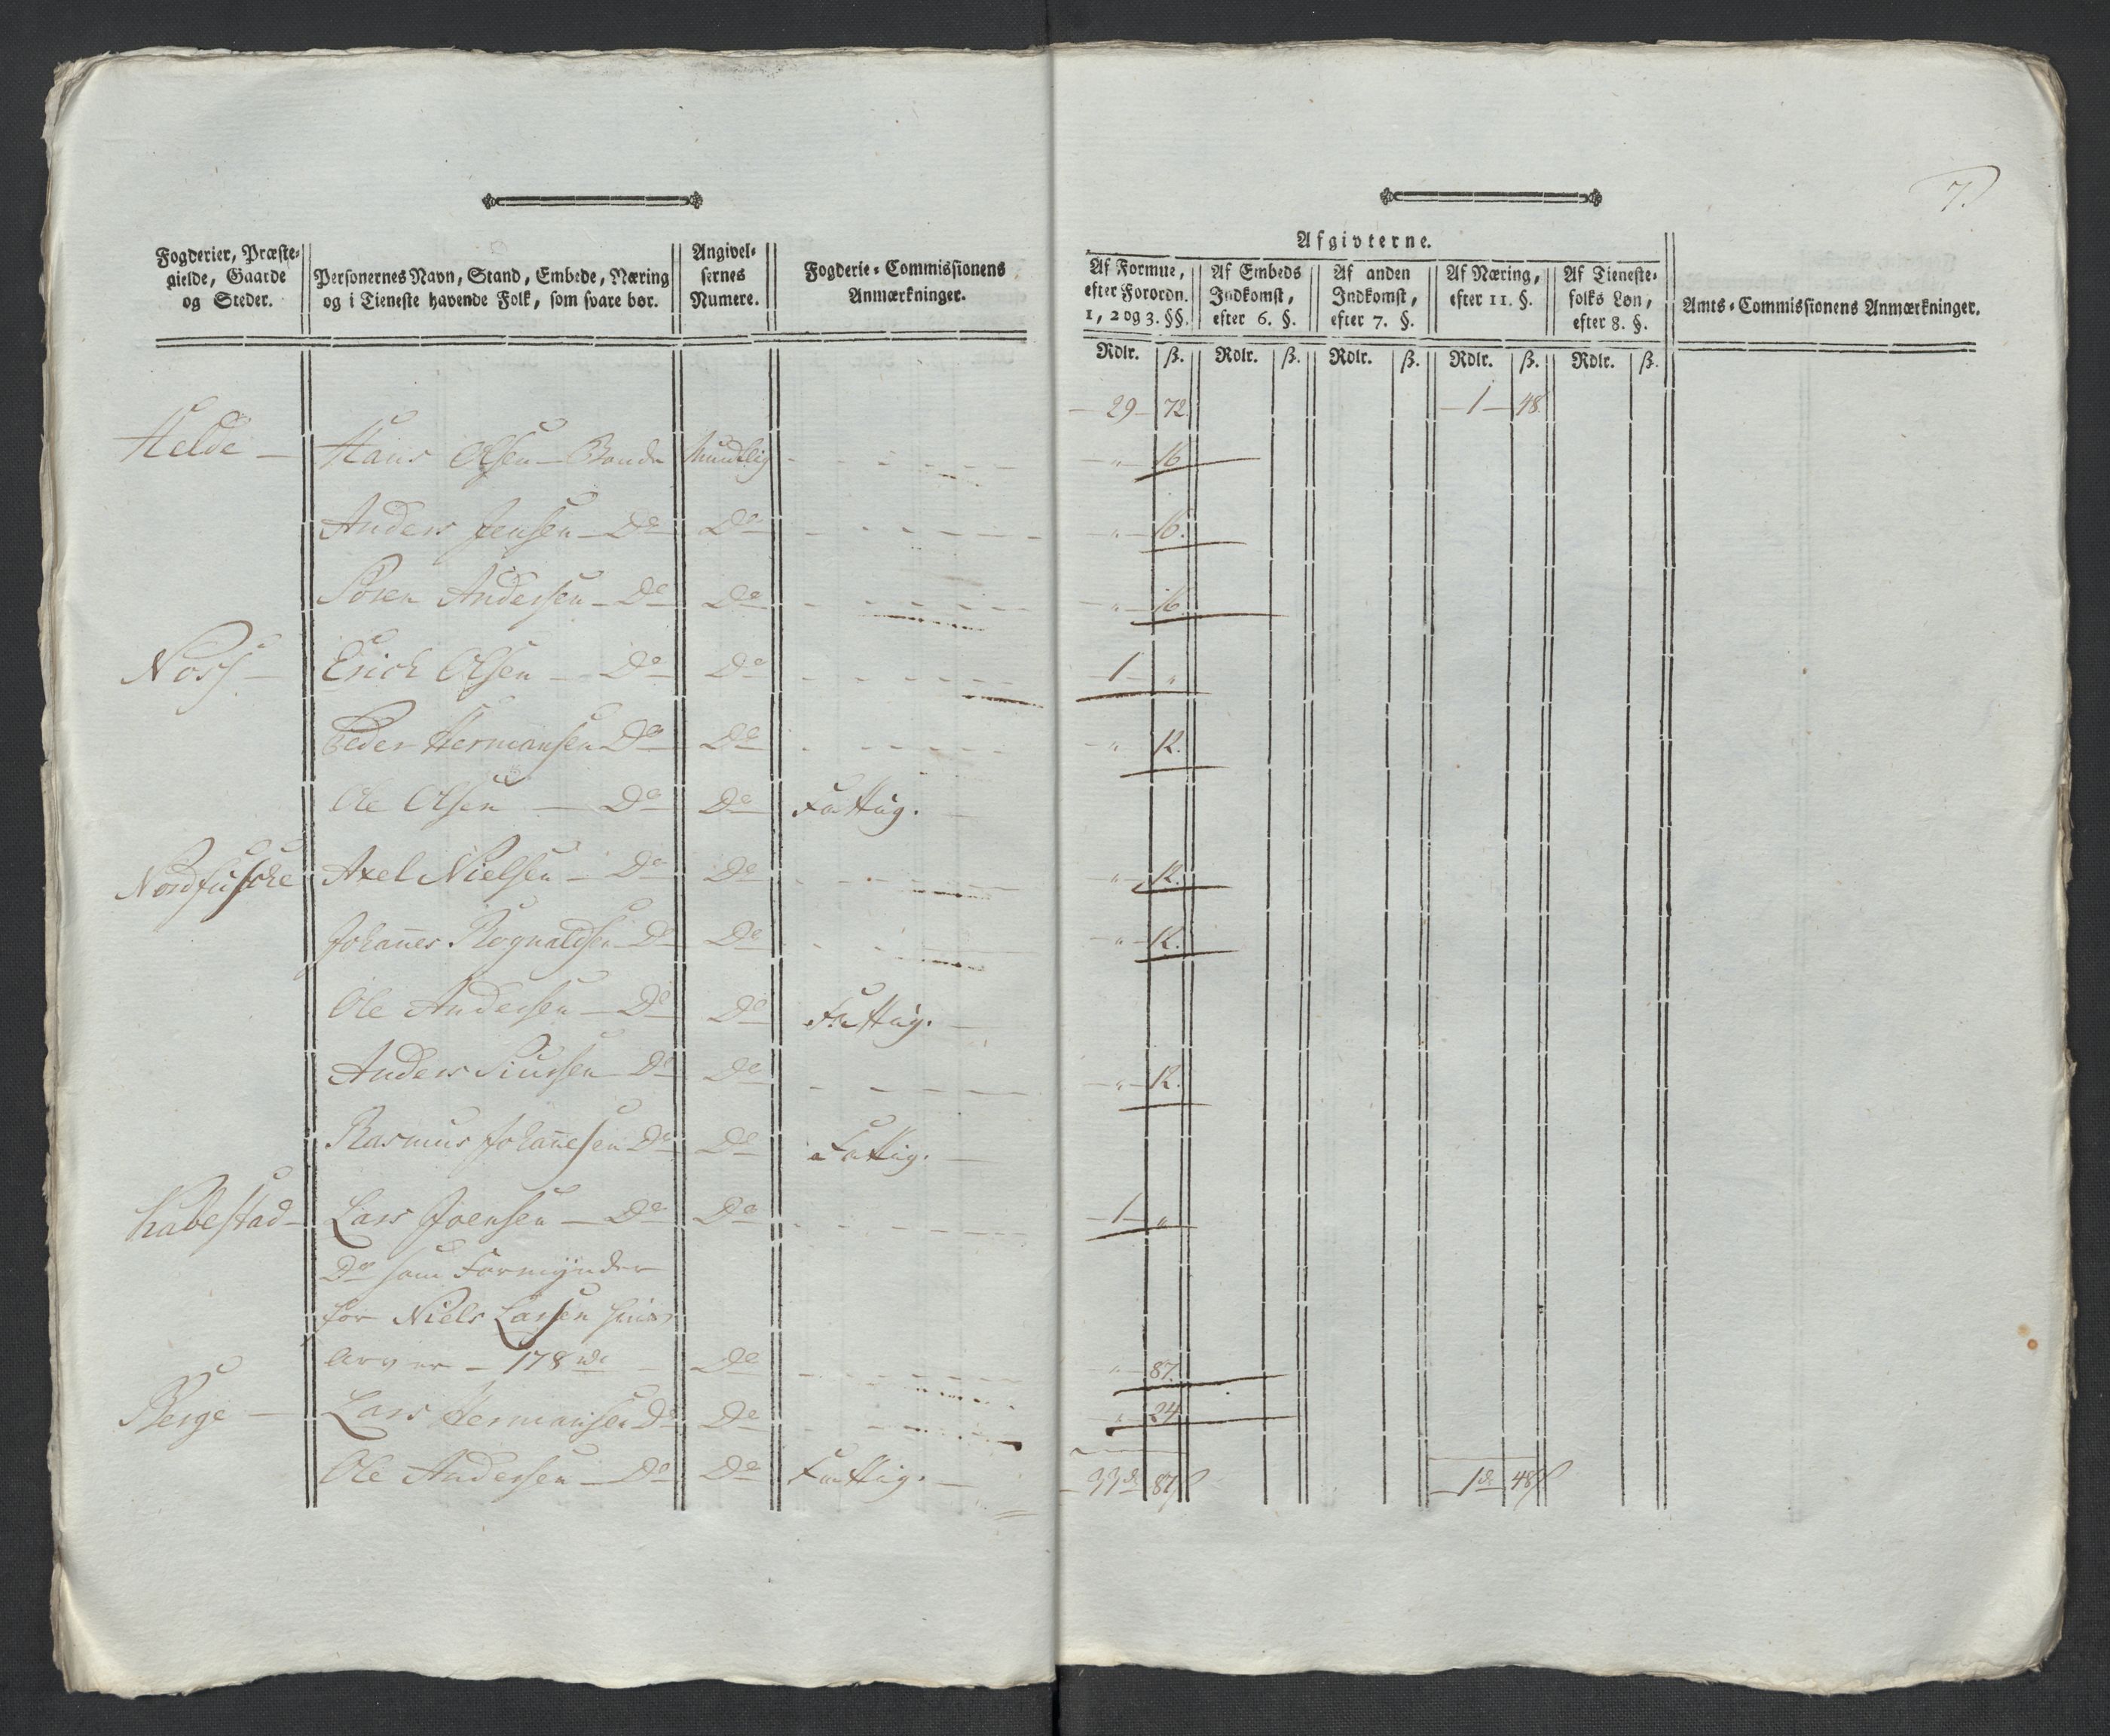 7.
Fogderier, Præste-
gielde, Gaarde
og Steder.
Personernes Navn, Stand, Embede, Næring
og i Tieneste havende Folk, som svare bør.
Angivel-
sernes
Numere.
Fogderie-Commissionens
Anmærkninger.
Afgivterne.
Af Formue,
efter Forordn.
1, 2 og 3. §§.
Af Embeds
Indkomst,
efter 6. §.
Af anden
Indkomst,
efter 7. §.
Af Næring,
efter 11. §.
Af Tieneste-
folks Løn,
efter 8. §.
Amts-Commissionens Anmærkninger.
Rdlr. ß. Rdlr. ß. Rdlr. ß. Rdlr. ß. Rdlr. ß.
29 72 1 48
Helde Hans Olsen Bonde Mundtlig " 16
Anders Jensen Do Do " 16.
Søren Andersen Do Do " 16
Noss Erich Olsen Do Do 1 "
Peder Hermansen Do Do " 12.
Ole Olsen Do Do Fattig.
Axel Nielsen Do Do " 12.
Johannes Rognaldsen Do Do " 12.
Ole Andersen Do Do Fattig.
Anders Siursen Do Do " 12.
Rasmus Johannesen Do Do Fattig.
Habestad Lars Joensen Do Do 1 "
Do som Formynder
for Niels Larsen
Arver 178 rd Do " 87.
Berge Lars Hermansen Do Do " 24
Ole Andersen Do Do Fattig.
33 rd 87 ß 1 rd 48 ß